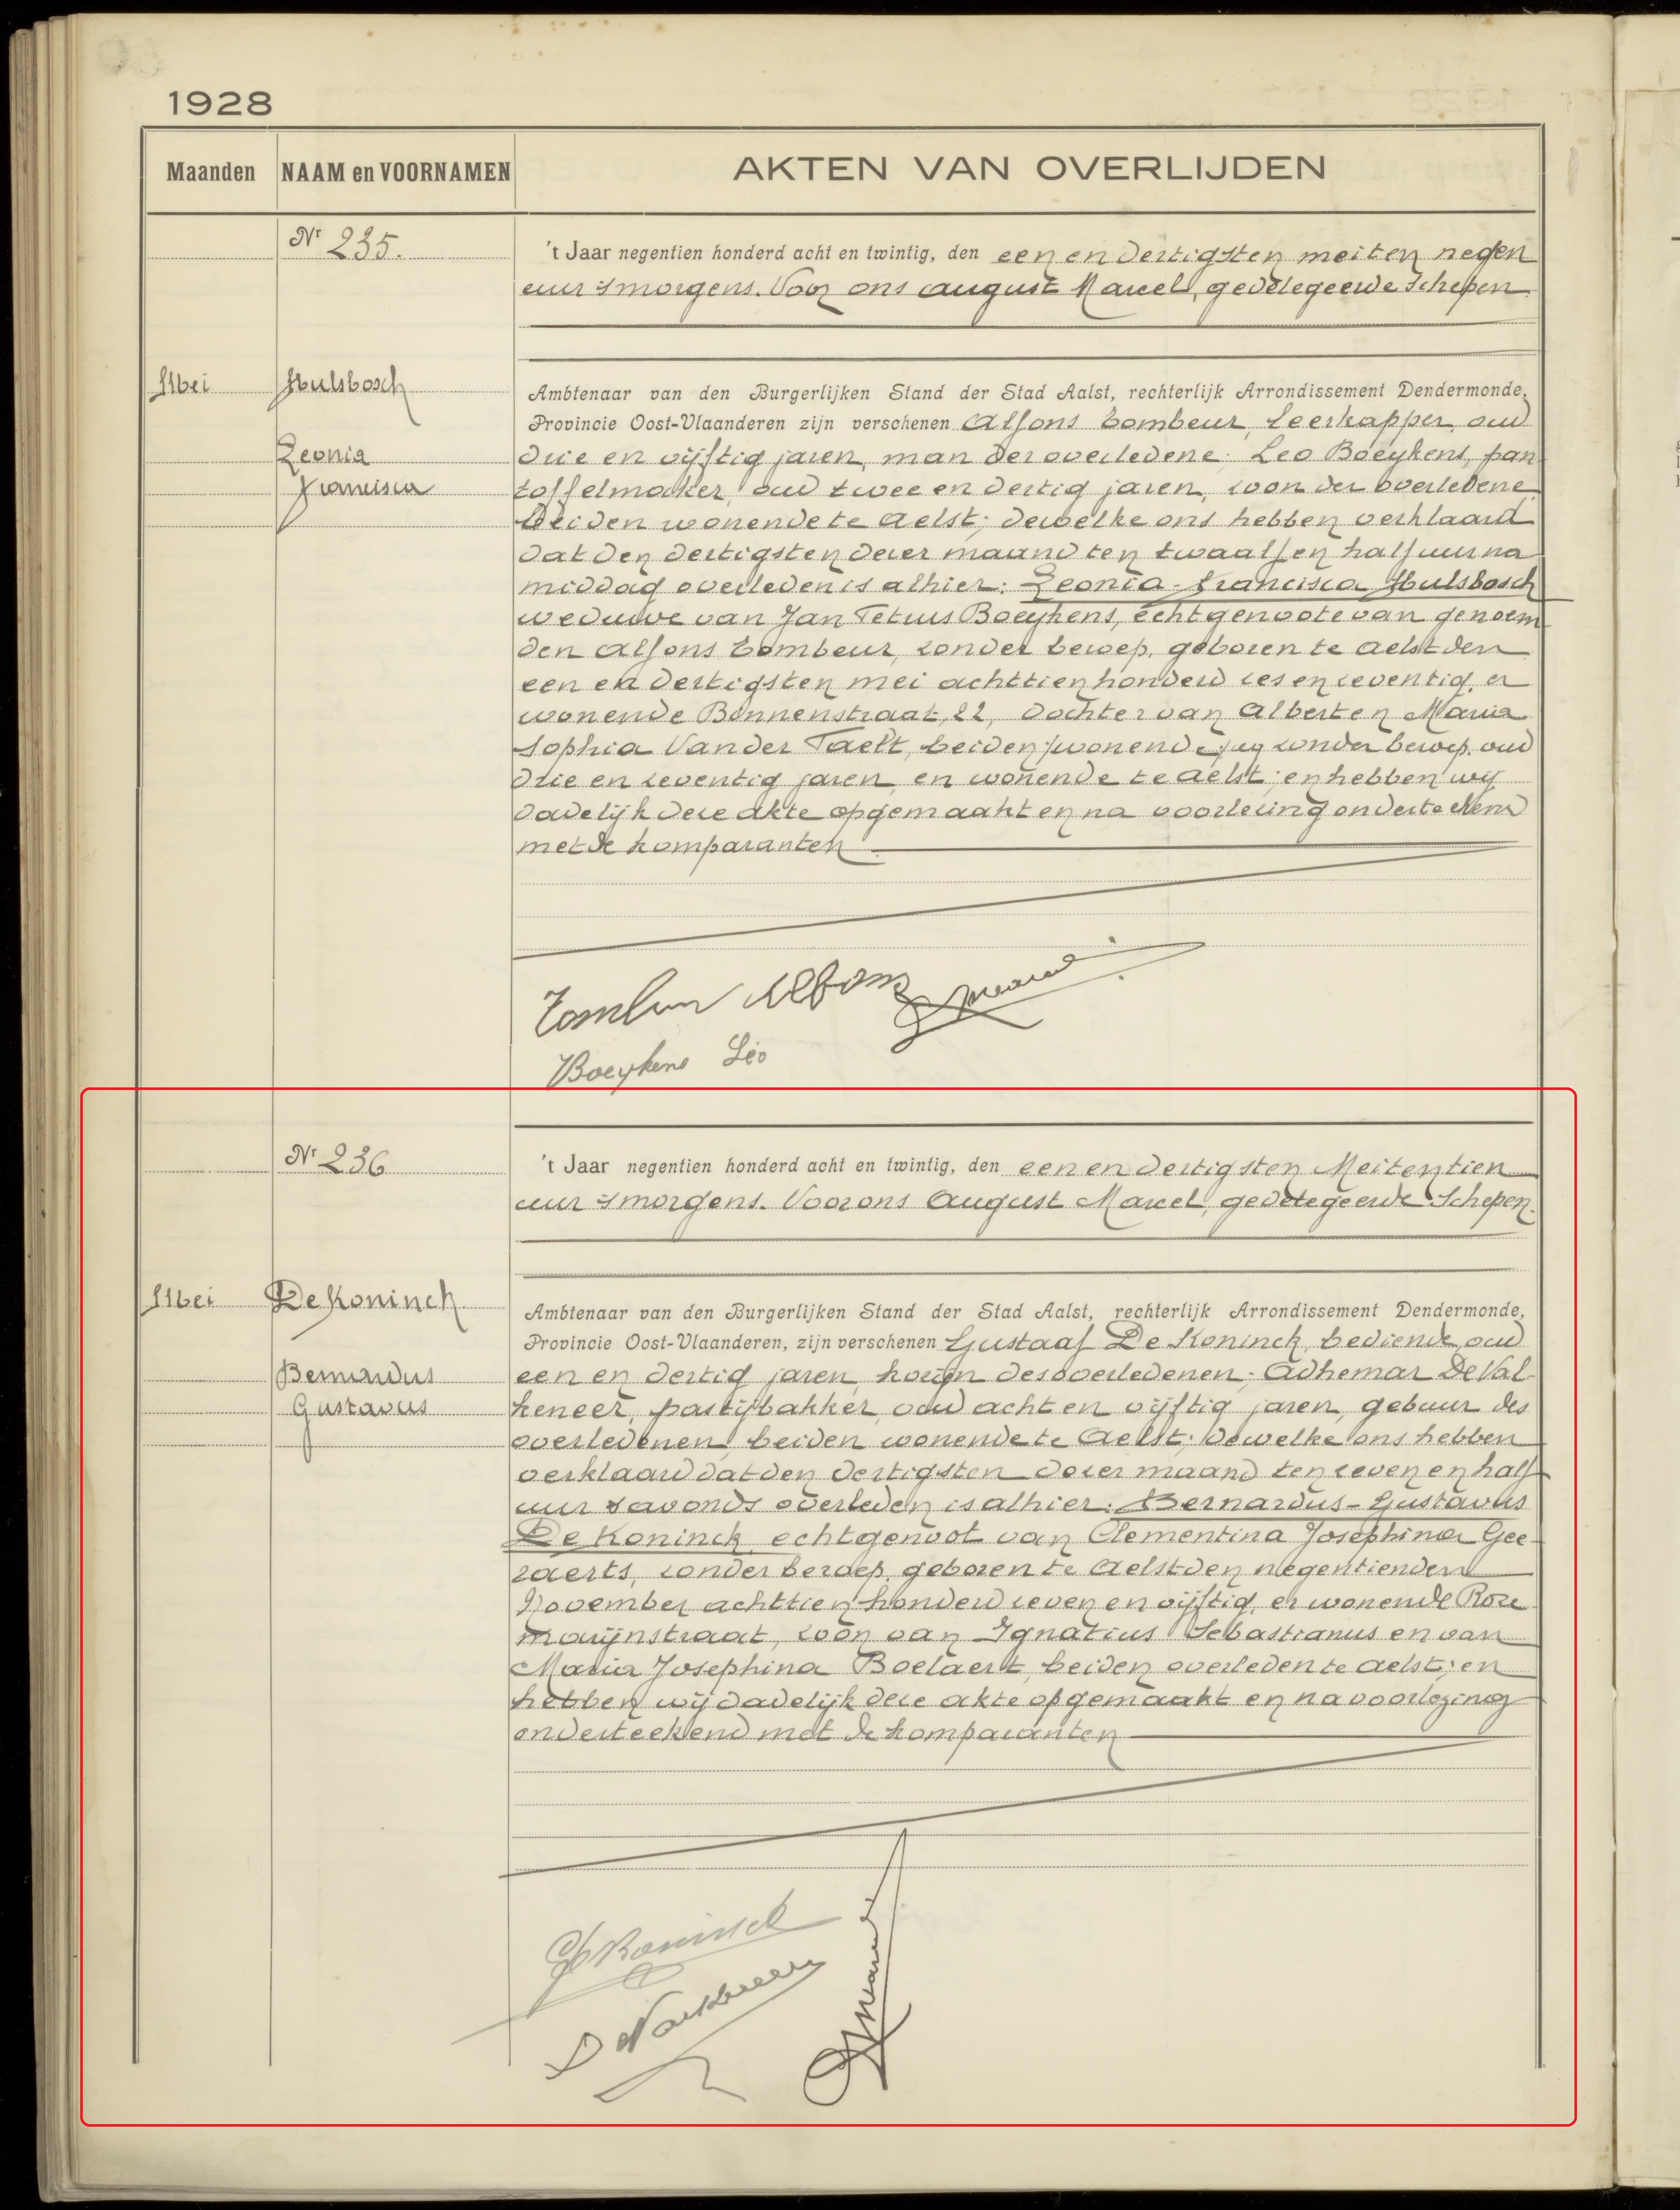 1928
Maanden NAAM en VOORNAMEN AKTEN VAN OVERLIJDEN
Nr 235.
't Jaar negentien honderd acht en twintig, den een en dertigsten mei ten negen
uur smorgens. Voor ons August Marcel, gedelegeerde Schepen
31 bei Hulsbosch
Leonia
Francisca
Ambtenaar van den Burgerlijken Stand der Stad Aalst, rechterlijk Arrondissement Dendermonde,
Provincie Oost-Vlaanderen zijn verschenen Alfons Tombeur, leerkapper, oud
drie en vijftig jaren, man der overledene; Leo Boeykens, pan
toffelmaker, oud twee en dertig jaren, zoon der overledene
beiden wonende te Aelst; dewelke ons hebben verklaard
dat den dertigsten dezer maand ten twaalf en half uur na
middag overleden is alhier: Leonia-Francisca Hulsbosch
weduwe van Jan Petrus Boeykens, echtgenoote van genoem
den Alfons Tombeur, zonder beroep, geboren te Aelst den
een en dertigsten mei achttien honderd zes en zeventig, er
wonende Binnenstraat, 22, dochter van Albert en Maria
Sophia Van der Taelt, beiden wonende, zonder beroep, oud
drie en zeventig jaren, en wonende te Aelst; en hebben wij
dadelijk deze akte opgemaakt en na voorlezing onderteekend
met de komparanten
Tombeur Alfons
Boeykens Léo
Nr 236
't Jaar negentien honderd acht en twintig, den een en dertigsten Mei ten tien
uur smorgens. Voor ons August Marcel, gedelegeerde Schepen.
31 bei De Koninck
Bernardus
Gustavus
Ambtenaar van den Burgerlijken Stand der Stad Aalst, rechterlijk Arrondissement Dendermonde,
Provincie Oost-Vlaanderen, zijn verschenen Gustaaf De Koninck, bediende, oud
een en dertig jaren, kozijn des overledenen; Adhemar De Val
keneer, pasteibakker, oud acht en vijftig jaren, gebuur des
overledenen beiden wonende te Aelst; dewelke ons hebben
verklaard dat den dertigsten dezer maand ten zeven en half
uur s avonds overleden is alhier: Bernardus-Gustavus
De Koninck, echtgenoot van Clementina Josephina Gee
raerts, zonder beroep, geboren te Aelst den negentienden
November achttien honderd zeven en vijftig, er wonende Roze
marijnstraat, zoon van Ignatius Sebastianus en van
Maria Josephina Boelaert, beiden overleden te Aelst; en
hebben wij dadelijk deze akte opgemaakt en na voorlezing
onderteekend met de komparanten